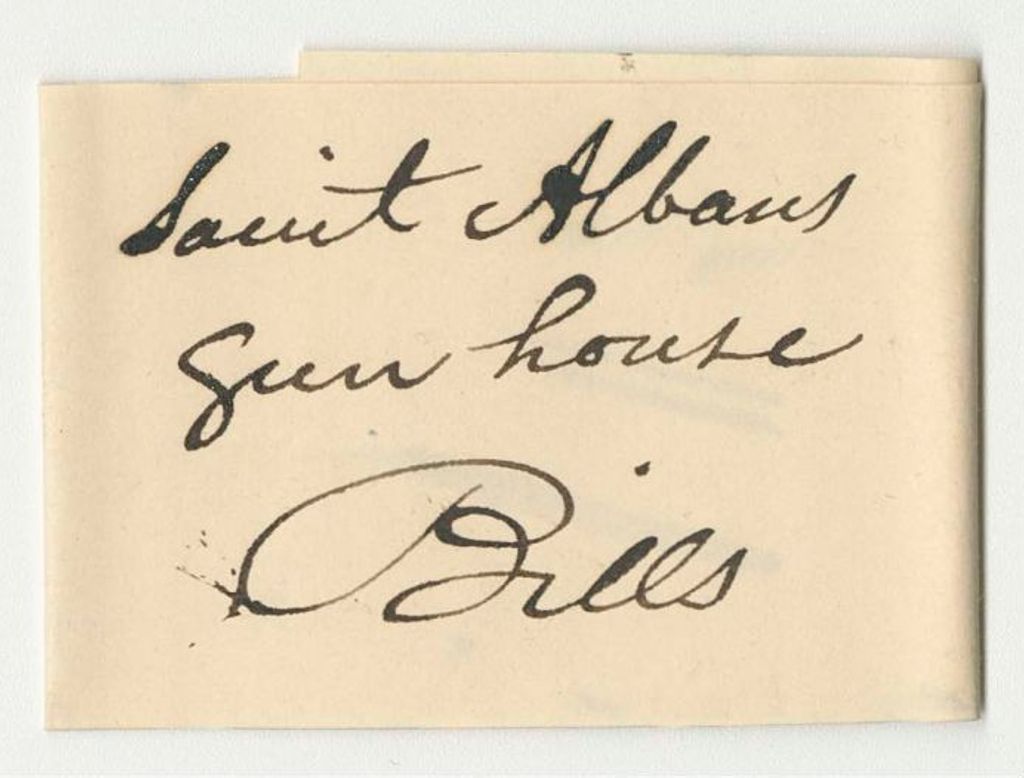 Saint Albans
Gun house
Bills